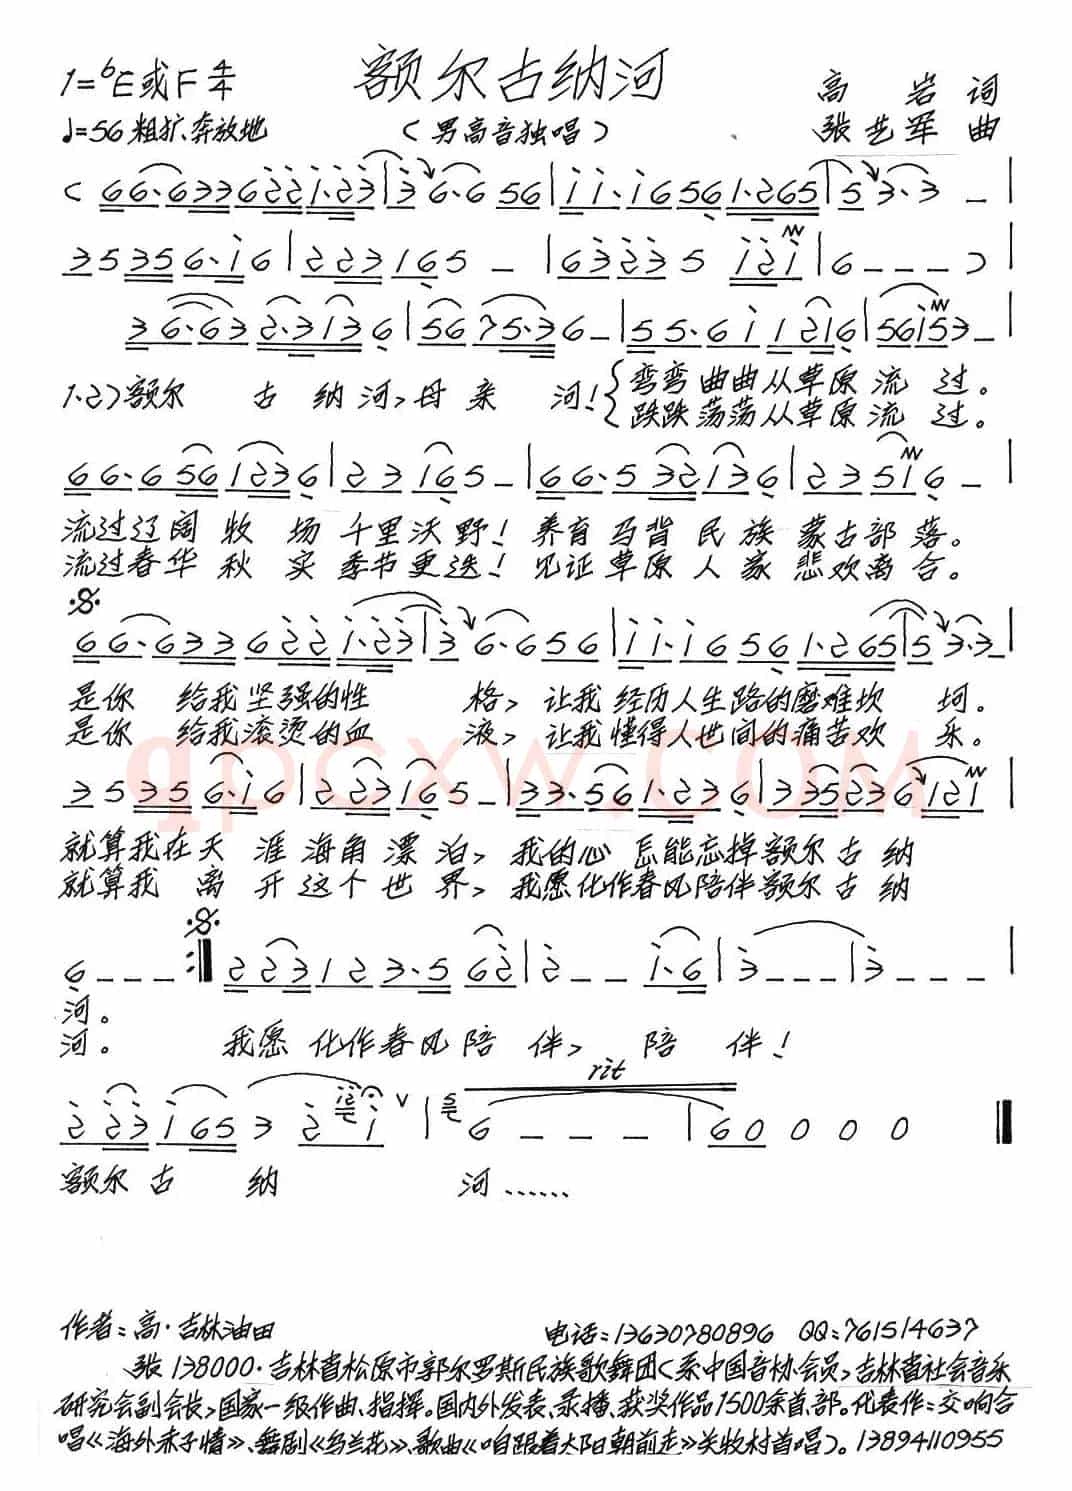 额尔古纳河
1=♭E或F 4/4
高 岩 词
♩=56 粗犷、奔放地
(男高音独唱)
张艺军 曲
(66·633622 1·23|3 6·6 56|11·16561·265|53·3 –|
353356·16|223165 –|63235 121|6 – – –)|
36·632·3136|5675·36–|55·611216|56153–|
1.2)额尔 古纳河,母亲 河!{弯弯曲曲从草原流过。
跌跌荡荡从草原流过。
66·6561236|23165–|66·53213 6|23516–|
流过辽阔牧场千里沃野!养育马背民族蒙古部落。
流过春华秋实季节更迭!见证草原人家悲欢离合。
66·6336221·23|36·6566|11·16561·265|53·3–|
是你 给我坚强的性 格,让我经历人生路的磨难坎 坷。
是你 给我滚烫的血 液,让我懂得人世间的痛苦欢 乐。
qpcxw.com
35356·16|2231 65–|33·561·236|335236121|
就算我在天 涯海角漂泊,我的心怎能忘掉额尔古纳
就算我 离 开这个世界,我愿化作春风陪伴额尔古纳
6 – – –:‖223123·562|2 – – 1·6|3 – – –|3 – – –|
河。
河。 我愿化作春风陪 伴,陪 伴!
rit
22316532 1 ∨|6 – – –|60 0 0 0‖
额尔古 纳 河……
作者:高·吉林油田 电话:13630780896 QQ:761514637
张 138000·吉林省松原市郭尔罗斯民族歌舞团(系中国音协会员,吉林省社会音乐
研究会副会长,国家一级作曲、指挥。国内外发表、录播、获奖作品1500余首、部。代表作:交响合
唱《海外赤子情》、舞剧《乌兰花》、歌曲《咱跟着太阳朝前走》关牧村首唱)。13894110955